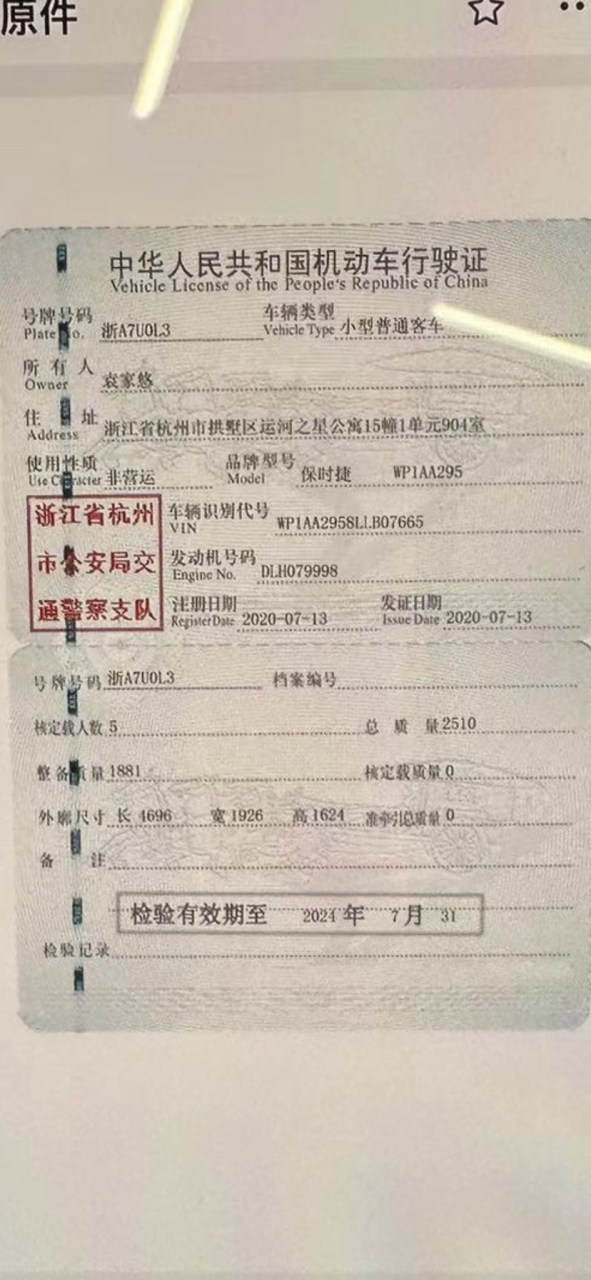 原件
中华人民共和国机动车行驶证
Vehicle License of the People's Republic of China
号牌号码 浙A7U0L3 车辆类型 小型普通客车
Plate No. Vehicle Type
所有人 袁家悠
Owner
住址 浙江省杭州市拱墅区运河之星公寓15幢1单元904室
Address
使用性质 非营运 品牌型号 保时捷 WP1AA295
Use Character Model
浙江省杭州
市公安局交
通警察支队
车辆识别代号 WP1AA2958LLB07665
VIN
发动机号码 DLH079998
Engine No.
注册日期 2020-07-13 发证日期 2020-07-13
Register Date Issue Date
号牌号码 浙A7U0L3 档案编号
核定载人数 5 总质量 2510
整备质量 1881 核定载质量 0
外廓尺寸 长 4696 宽 1926 高 1624 准牵引总质量 0
备注
检验有效期至 2024 年 7 月 31
检验记录